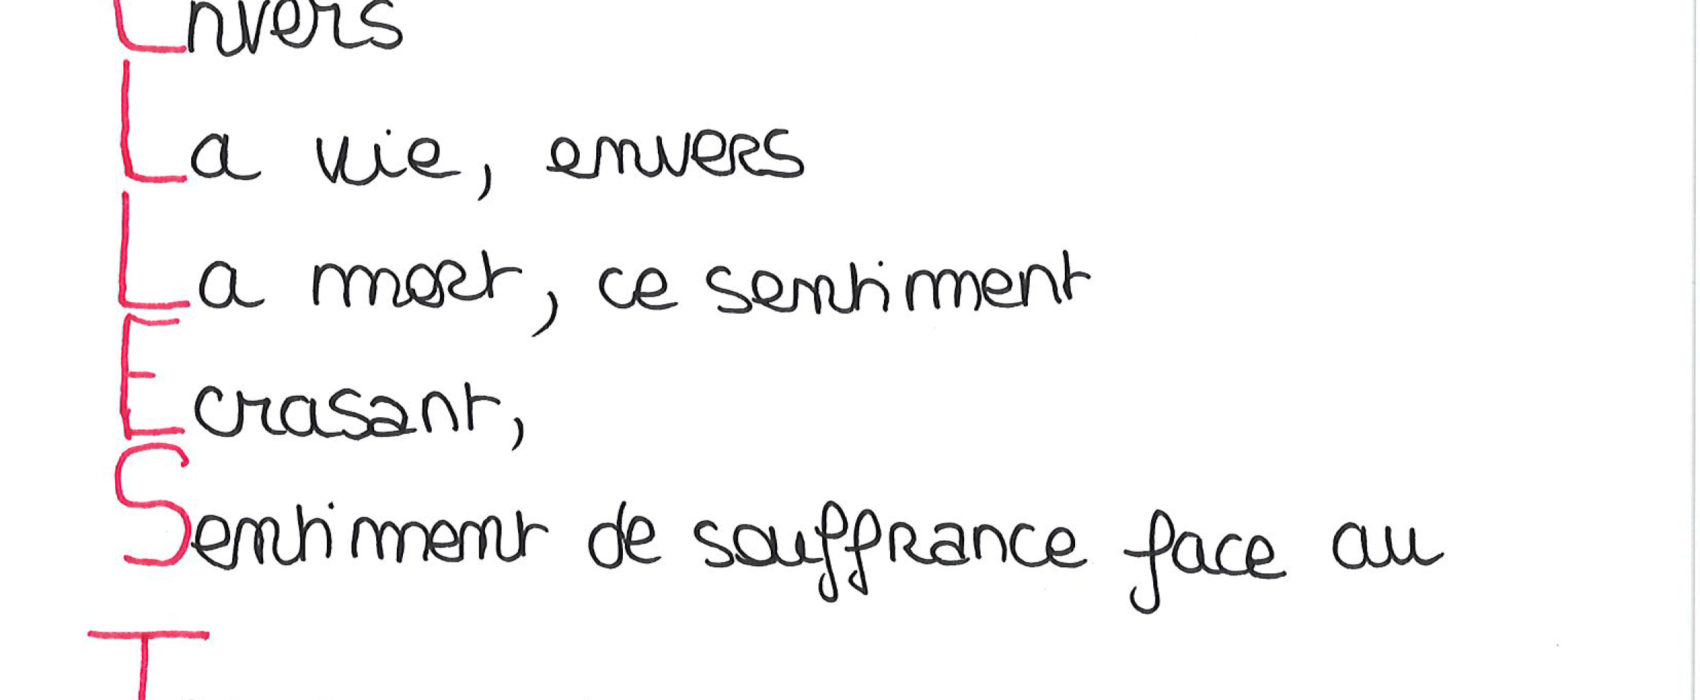 Envers
La vie, envers
La mort, ce sentiment
Ecrasant,
Sentiment de souffrance face au
T